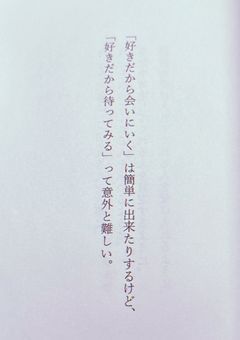 「好きだから会いにいく」は簡単に出来たりするけど、
「好きだから待ってみる」って意外と難しい。